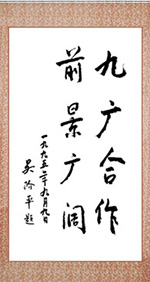 九广合作
前景广阔
一九九五年九月九日
吴冷平题